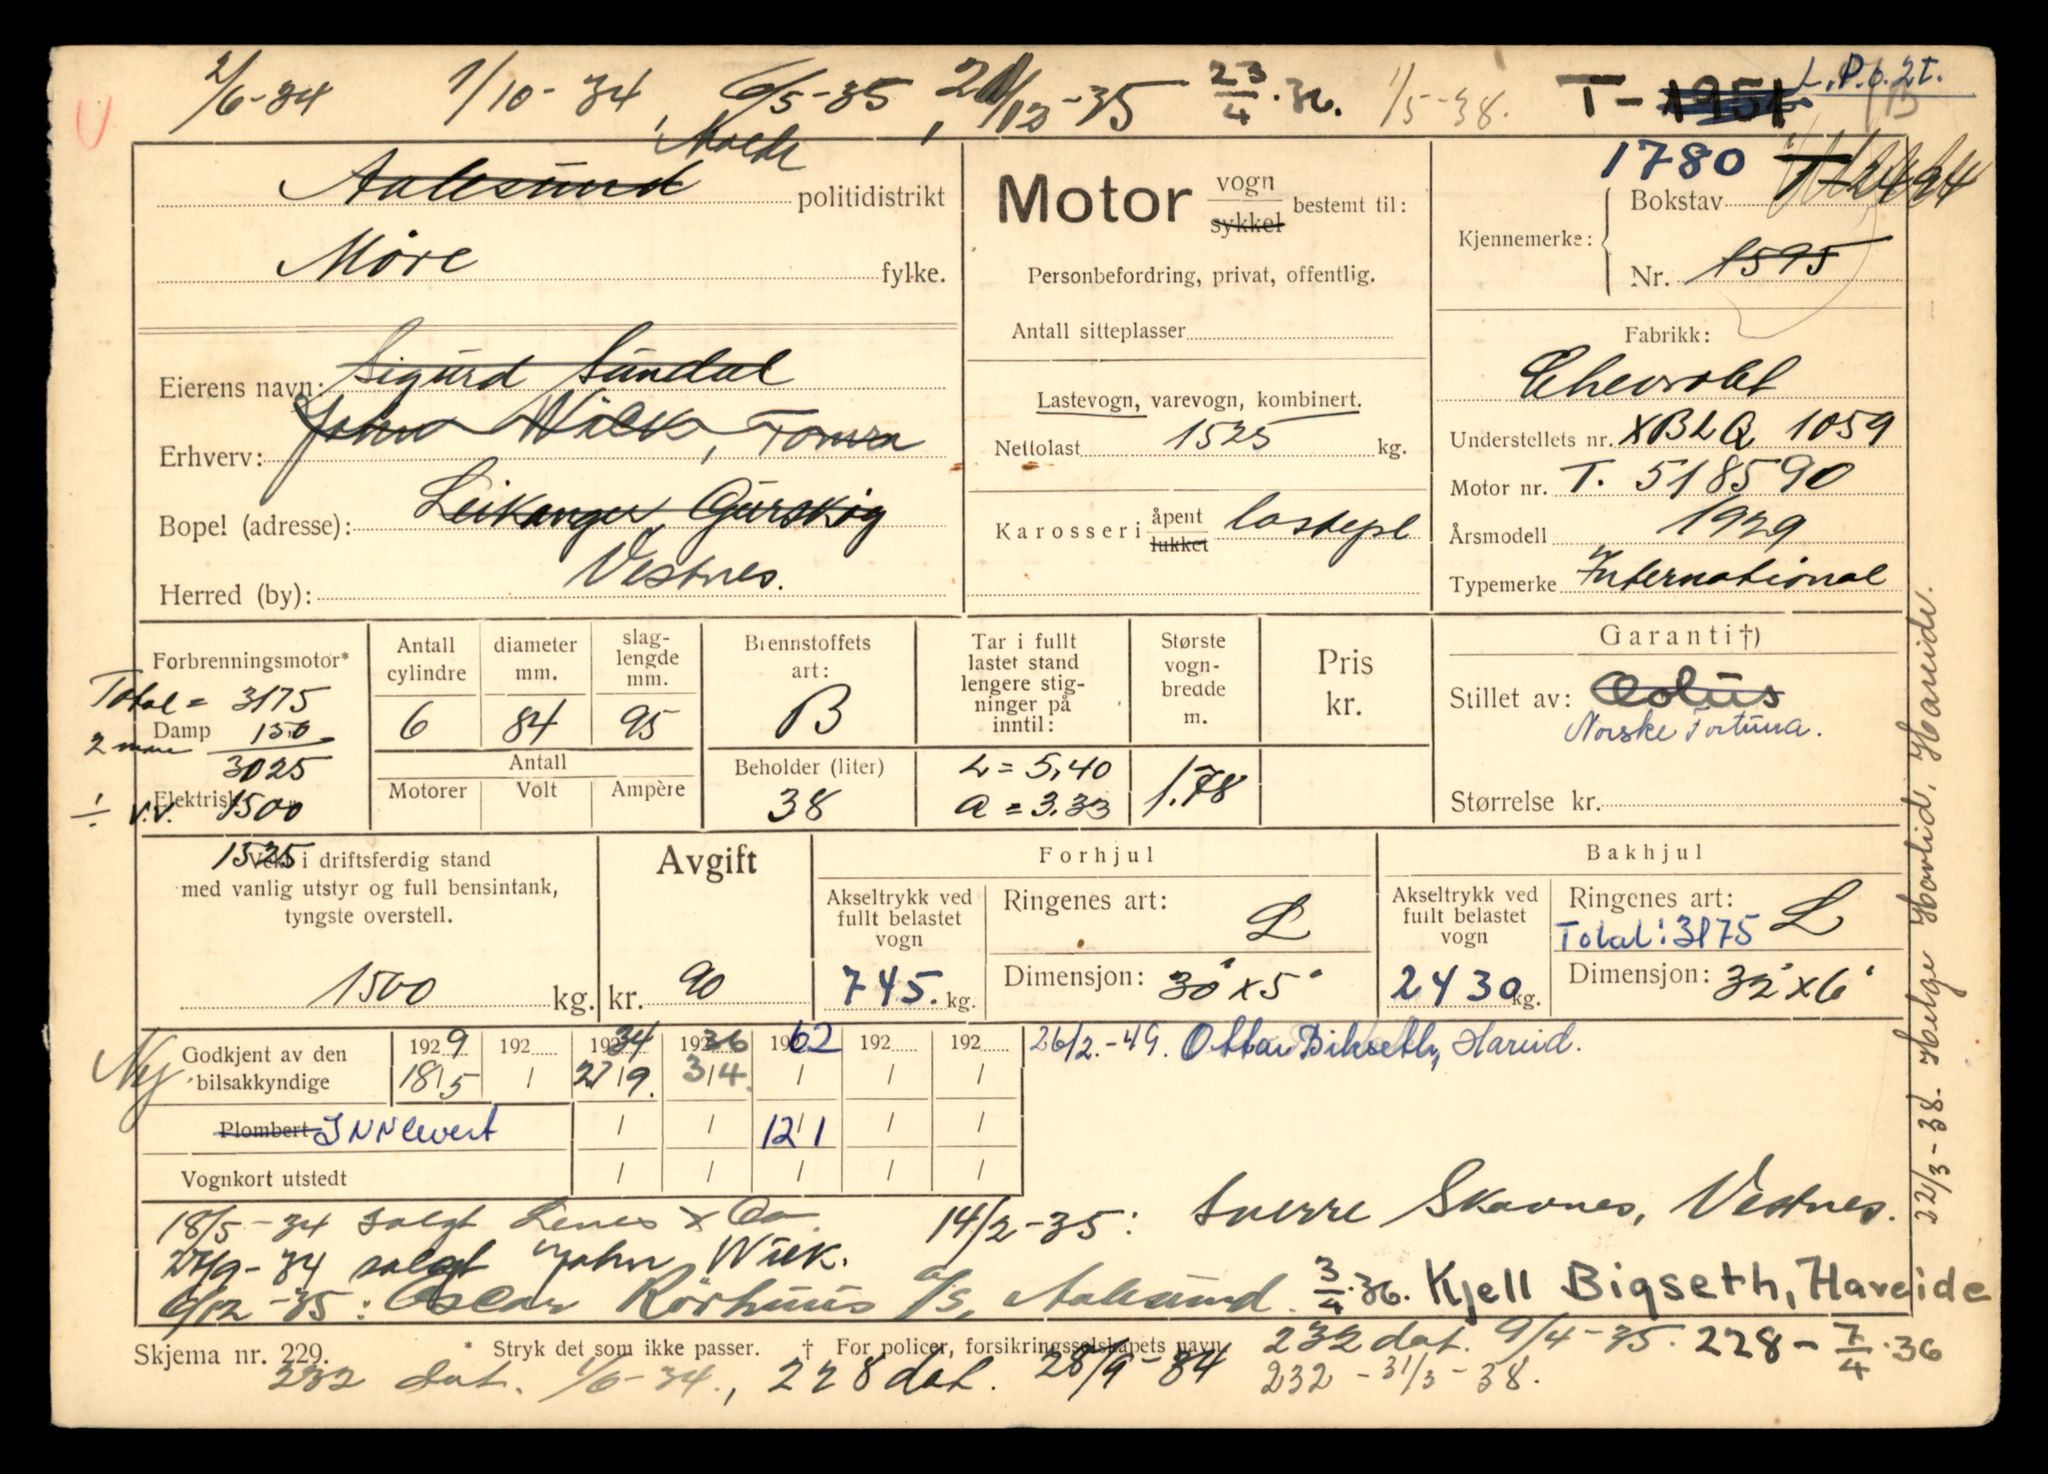 2/6-34 1/10-34, 6/5-35, 21/12-35 23/4.36. 1/5-38. T-1951 L.P.b. 2t.
Molde 1780 T-12494
Aalesund politidistrikt
Møre fylke.
Motor vogn sykkel bestemt til:
Personbefordring, privat, offentlig.
Antall sitteplasser
Kjennemerke: Bokstav
Nr. 1595
Eierens navn: Sigurd Sundal
John Wiik, Tomra
Erhverv:
Bopel (adresse): Leikanger Gurskøy
Vestnes.
Herred (by):
Lastevogn, varevogn, kombinert.
Nettolast 1525 kg.
Karosseri åpent lukket lastepl
Fabrikk:
Chevrolet
Understellets nr. XBLQ 1059
Motor nr. T. 518590
Årsmodell 1929
Typemerke International
Forbrenningsmotor*
Total = 3175
Damp 150
2 mann 3025
Elektrisk
÷ v.v. 1500
1525
Antall cylindre 6
diameter mm. 84
slaglengde mm. 95
Antall
Motorer Volt Ampère
Brennstoffets art: B
Beholder (liter) 38
Tar i fullt lastet stand lengere stigninger på inntil:
L = 5,40
a = 3.33
Største vognbredde m. 1.78
Pris kr.
Garanti†)
Stillet av: Aolus
Norske Fortuna.
Størrelse kr.
Vekt i driftsferdig stand
med vanlig utstyr og full bensintank,
tyngste overstell.
1500 kg.
Avgift
kr. 90
Forhjul
Akseltrykk ved fullt belastet vogn
745. kg.
Ringenes art: L
Dimensjon: 30" x 5"
Bakhjul
Akseltrykk ved fullt belastet vogn
2430 kg.
Ringenes art: L
Total: 3175
Dimensjon: 32" x 6"
Ny
Godkjent av den bilsakkyndige
1929 192 34 36 1962 192 192
18/5 / 27/9. 3/4. / / /
Plombert INNlevert / / 12/1 / /
Vognkort utstedt / / / / /
26/2.-49. Ottar Bikseth, Hareid.
22/3-38. Helge Hovlid, Hareide.
18/5-34 solgt Lenes & Co. 14/2-35: Sverre Skavnes, Vestnes.
27/9-34 solgt John Wiik.
6/12-35: Oscar Rörhuus A/S, Aalesund. 3/4.36. Kjell Bigseth, Hareide
Skjema nr. 229. * Stryk det som ikke passer. † For policer, forsikringsselskapets navn.
232 dat. 9/4-35. 228-7/4.36
232 dat. 1/6-34., 228 dat. 28/9-34 232-31/3-38.